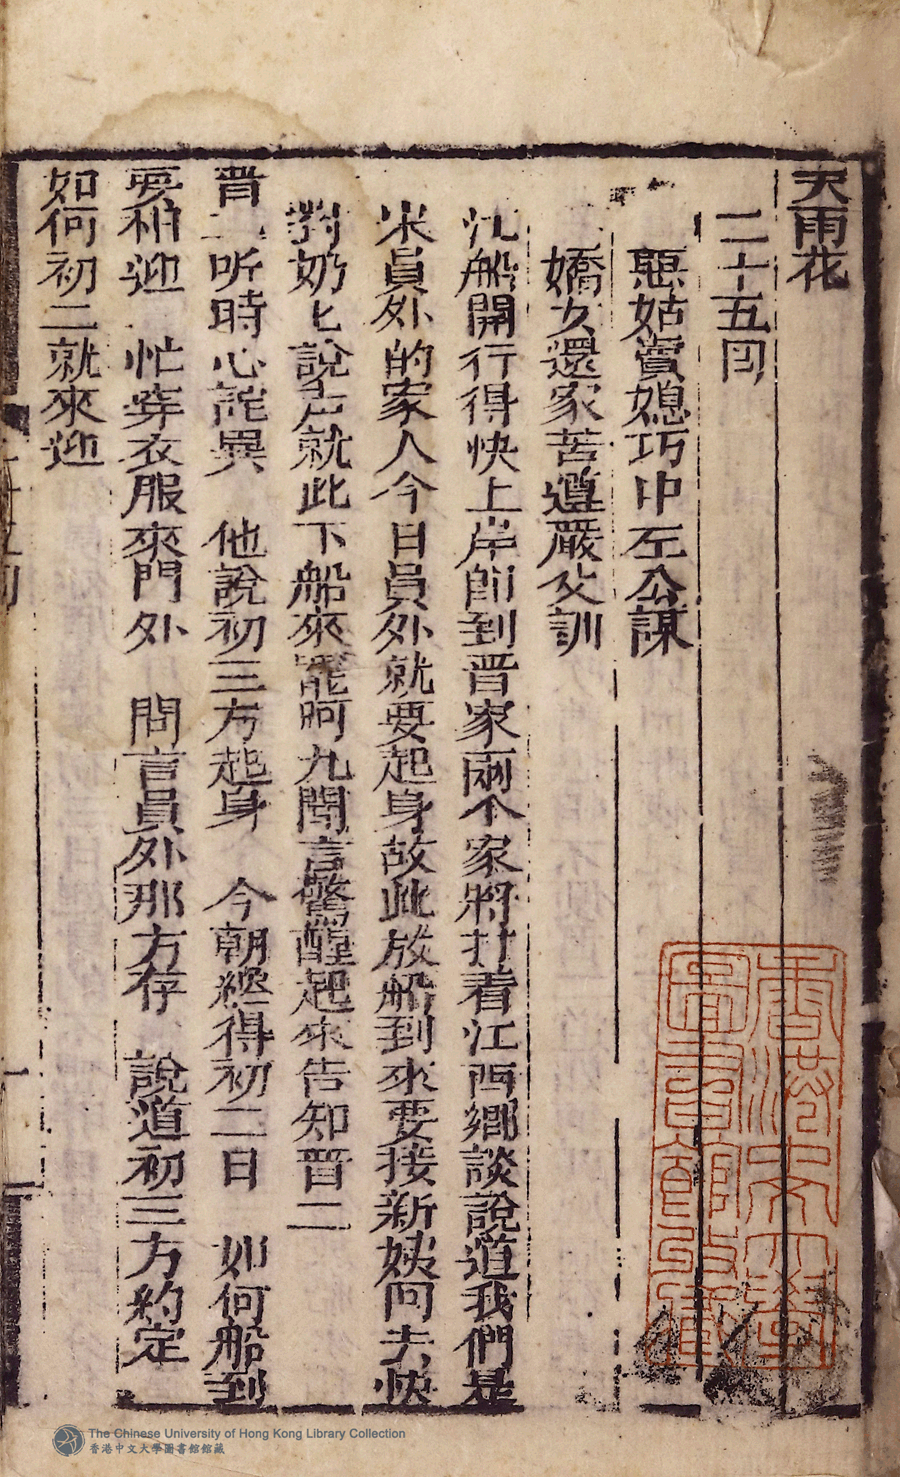 天雨花
二十五囘
惡姑賣媳巧中左公謀
嬌女還家苦遵嚴父訓
江船開行得快上岸卽到晋家兩个家將打着江西鄉談說道我們是
米員外的家人今日員外就要起身故此放船到來要接新姨囘去快
對奶匕說声就此下船來罷阿九聞言驚醒起來告知晋二
晋二听時心詫異 他說初三方起身 今朝纔得初二日 如何船到
要相迎 忙穿衣服來門外 問言員外那方存 說道初三方約定
如何初二就來迎
香港中文大學
圖書館藏
The Chinese University of Hong Kong Library Collection
香港中文大學圖書館館藏